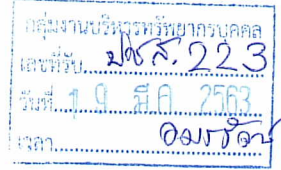 กลุ่มงานบริหารทรัพยากรบุคคล
เลขที่รับ ปชส. 223
วันที่ 19 มี.ค. 2563
เวลา